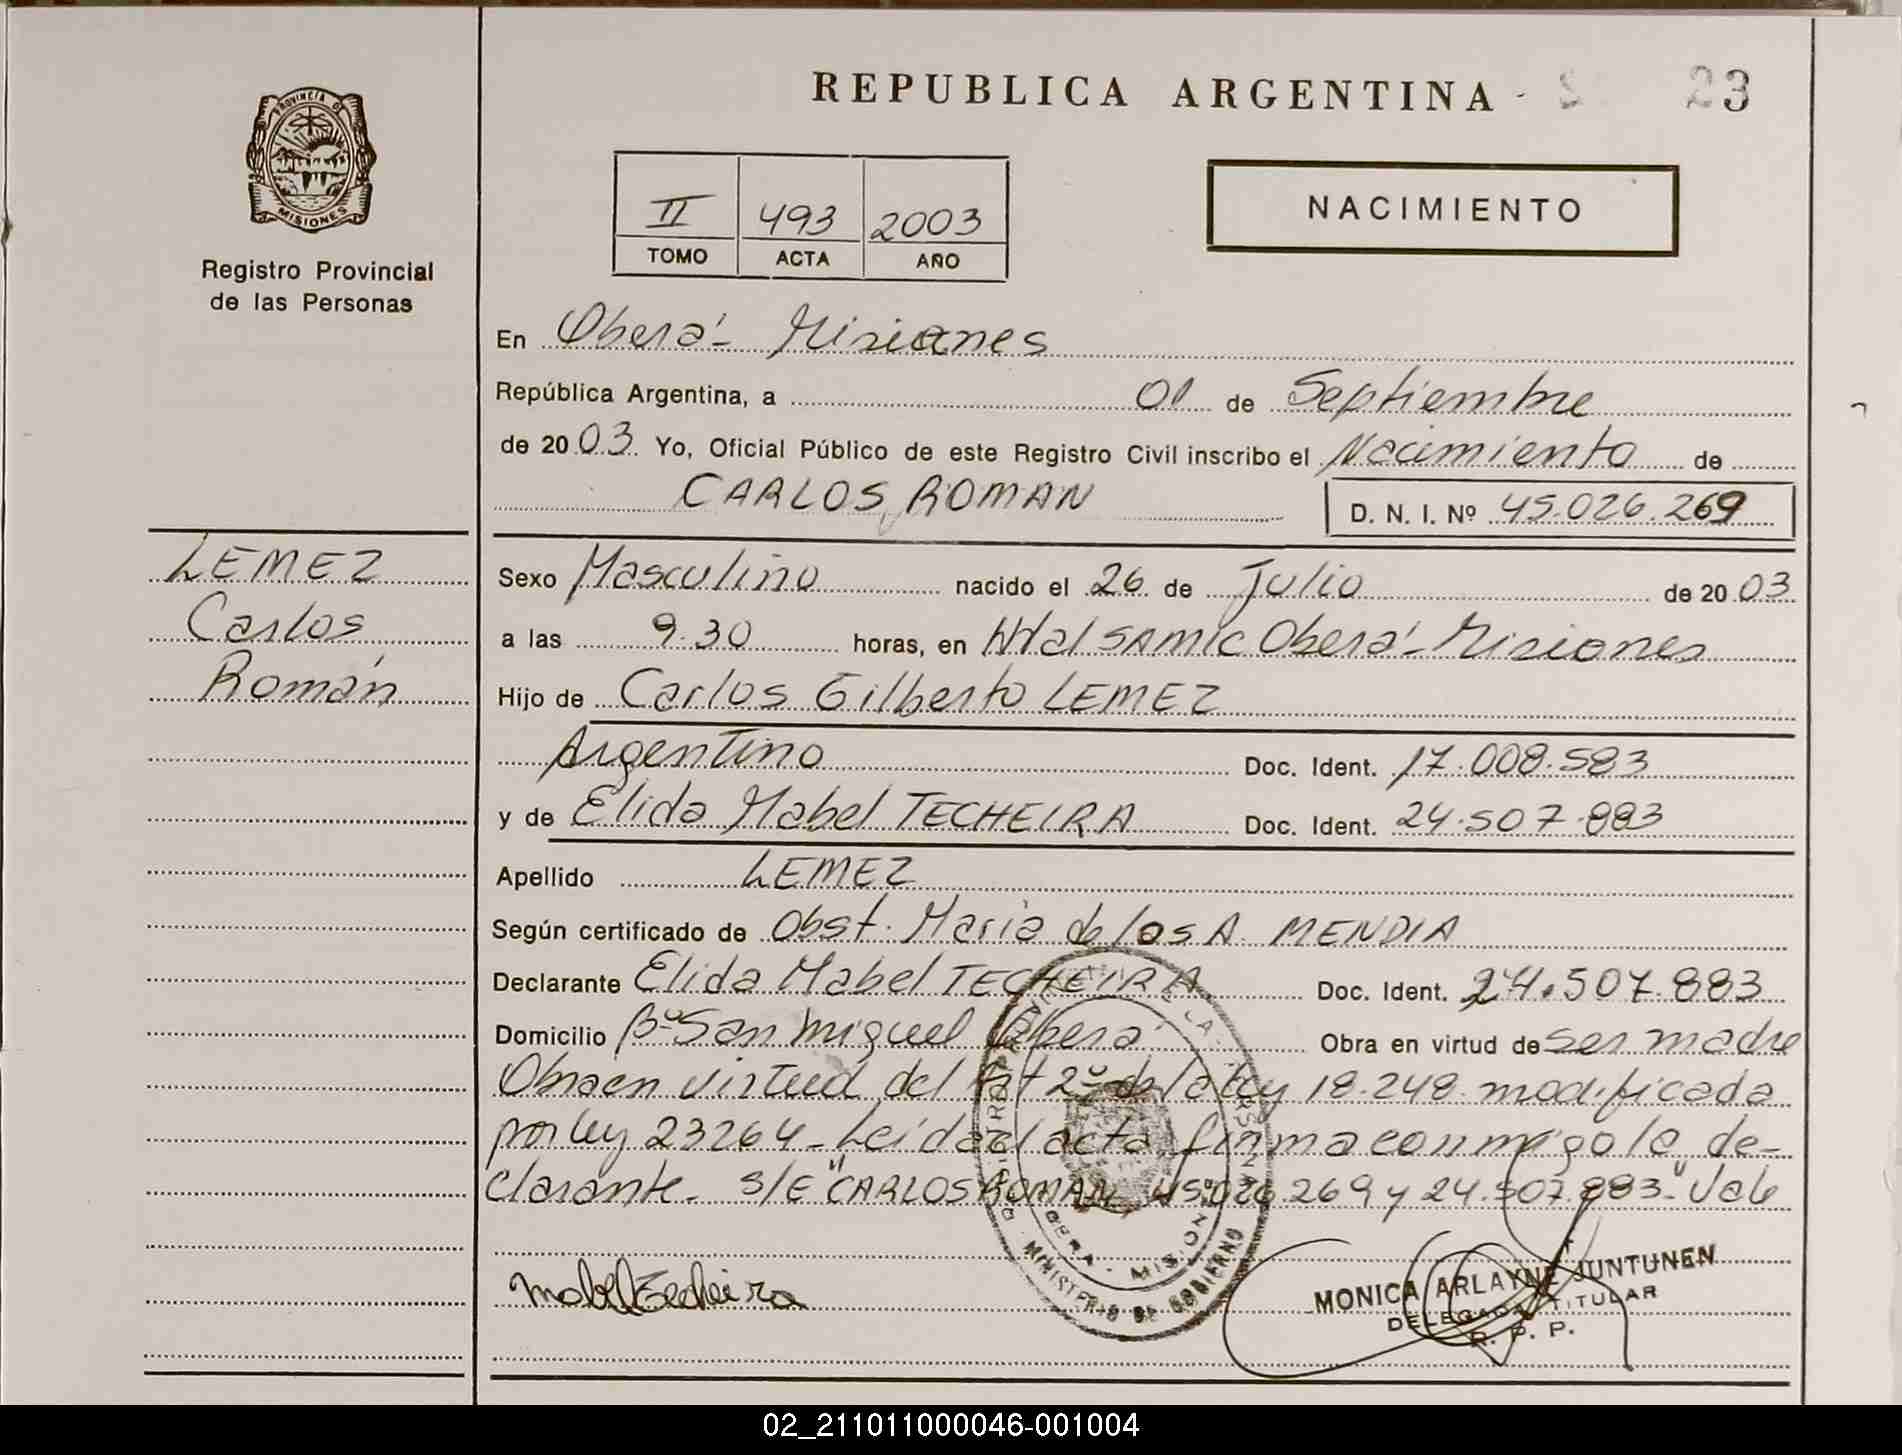 REPUBLICA ARGENTINA
23
PROVINCIA DE
MISIONES
Registro Provincial
de las Personas
II 493 2003
TOMO ACTA AÑO
NACIMIENTO
En Oberá - Misiones
República Argentina, a 01 de Septiembre
de 2003. Yo, Oficial Público de este Registro Civil inscribo el Nacimiento de
CARLOS ROMAN D. N. I. Nº 45.026.269
LEMEZ
Carlos
Román
Sexo Masculino nacido el 26 de Julio de 2003
a las 9.30 horas, en Htal SAMIC Oberá - Misiones
Hijo de Carlos Gilberto LEMEZ
Argentino Doc. Ident. 17.008.583
y de Elida Mabel TECHEIRA Doc. Ident. 24.507.883
Apellido LEMEZ
Según certificado de Obst. Maria de los A. MENDIA
Declarante Elida Mabel TECHEIRA Doc. Ident. 24.507.883
Domicilio Bº San Miguel Oberá Obra en virtud de ser madre
Obra en virtud del Art 2º de la ley 18.248 modificada
por ley 23264 - Leida el acta, firma conmigo la de-
clarante. S/E "CARLOS ROMAN 45.026.269 y 24.507.883" Vale
OBERA - MISIONES
MINISTERIO DE GOBIERNO
Mabel Techeira
MONICA ARLAYNE JUNTUNEN
DELEGADA TITULAR
R. P. P.
02_211011000046-001004